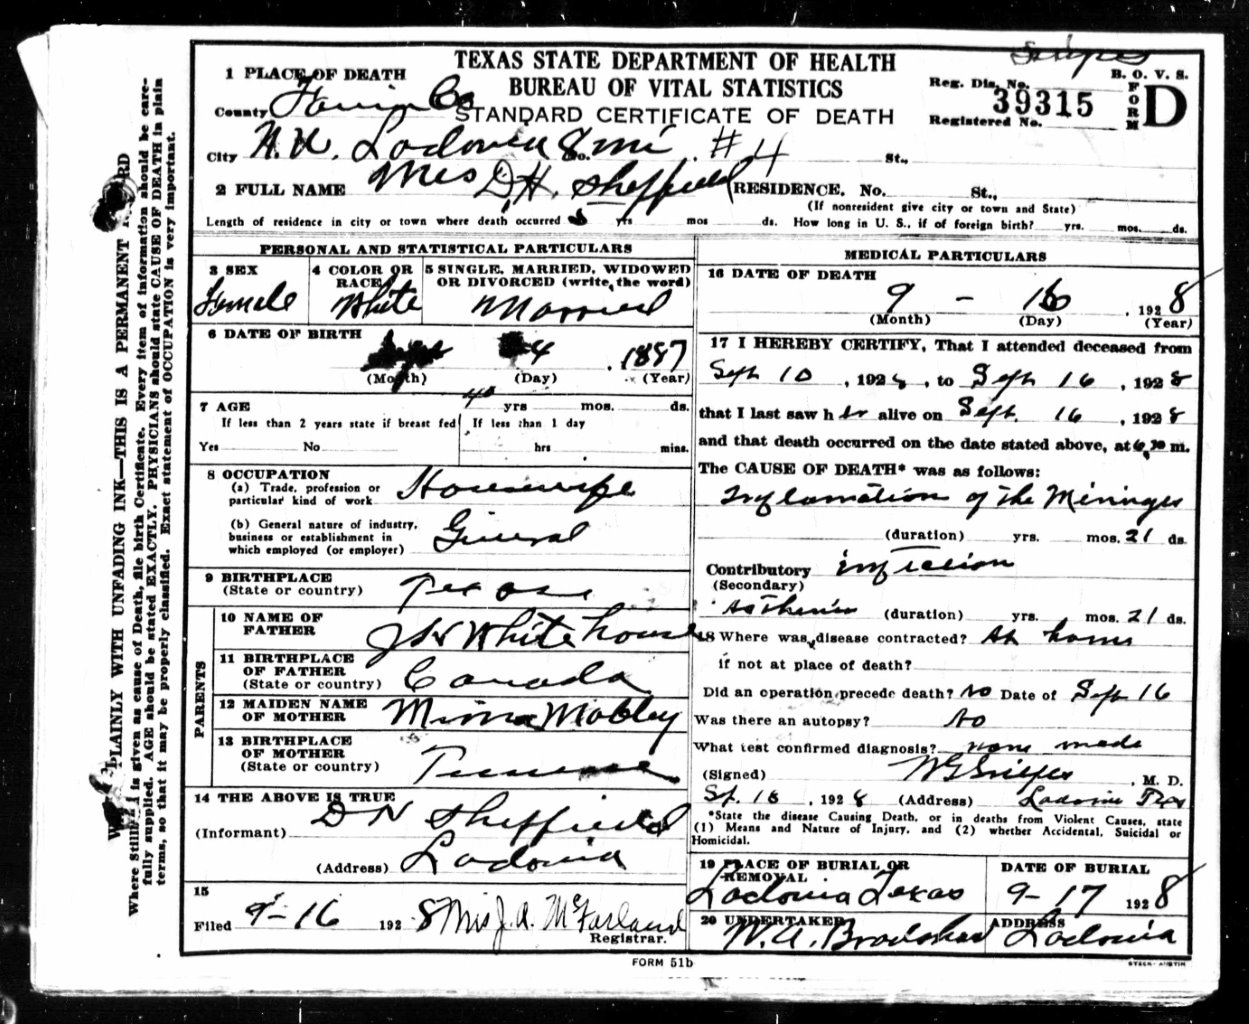 TEXAS STATE DEPARTMENT OF HEALTH
BUREAU OF VITAL STATISTICS
STANDARD CERTIFICATE OF DEATH
B. O. V. S.
FORM D
Reg. Dis. No.
39315
Registered No.
1 PLACE OF DEATH
County Co
City Ladonia 8 mi. #4 St.,
2 FULL NAME Mrs D H. Sheffield (RESIDENCE. No. St.,
(If nonresident give city or town and State)
Length of residence in city or town where death occurred yrs mos ds. How long in U. S., if of foreign birth? yrs. mos. ds.
PERSONAL AND STATISTICAL PARTICULARS
3 SEX Female
4 COLOR OR RACE White
5 SINGLE, MARRIED, WIDOWED OR DIVORCED (write the word) Married
6 DATE OF BIRTH
4, 1887
(Month) (Day) (Year)
7 AGE 40 yrs mos. ds.
If less than 2 years state if breast fed If less than 1 day
Yes No hrs mins.
8 OCCUPATION
(a) Trade, profession or particular kind of work Housewife
(b) General nature of industry, business or establishment in which employed (or employer) General
9 BIRTHPLACE
(State or country) Texas
PARENTS
10 NAME OF FATHER Whitehouse
11 BIRTHPLACE OF FATHER
(State or country) Canada
12 MAIDEN NAME OF MOTHER Mobley
13 BIRTHPLACE OF MOTHER
(State or country) Tennessee
14 THE ABOVE IS TRUE
(Informant) D H Sheffield
(Address) Ladonia
15
Filed 9-16 1928 Mrs J. A. McFarland
Registrar.
MEDICAL PARTICULARS
16 DATE OF DEATH
9 - 16, 1928
(Month) (Day) (Year)
17 I HEREBY CERTIFY, That I attended deceased from
Sept 10, 1928, to Sept 16, 1928
that I last saw her alive on Sept. 16, 1928
and that death occurred on the date stated above, at m.
The CAUSE OF DEATH* was as follows:
Inflamation of the Meninges
(duration) yrs. mos. 21 ds.
Contributory infection
(Secondary)
(duration) yrs. mos. 21 ds.
18 Where was disease contracted? At home
if not at place of death?
Did an operation precede death? No Date of Sept 16
Was there an autopsy? No
What test confirmed diagnosis? none made
(Signed) , M. D.
, 1928 (Address) Ladonia Tex
*State the disease Causing Death, or in deaths from Violent Causes, state
(1) Means and Nature of Injury, and (2) whether Accidental, Suicidal or
Homicidal.
19 PLACE OF BURIAL OR REMOVAL
Ladonia Texas
DATE OF BURIAL
9-17 1928
20 UNDERTAKER
W. A. Bradshaw
ADDRESS
Ladonia
FORM 51b
STECK-AUSTIN
PLAINLY WITH UNFADING INK—THIS IS A PERMANENT
Where is given as cause of Death, file birth Certificate. Every item of information should be care-
fully supplied. AGE should be stated EXACTLY. PHYSICIANS should state CAUSE OF DEATH in plain
terms, so that it may be properly classified. Exact statement of OCCUPATION is very important.